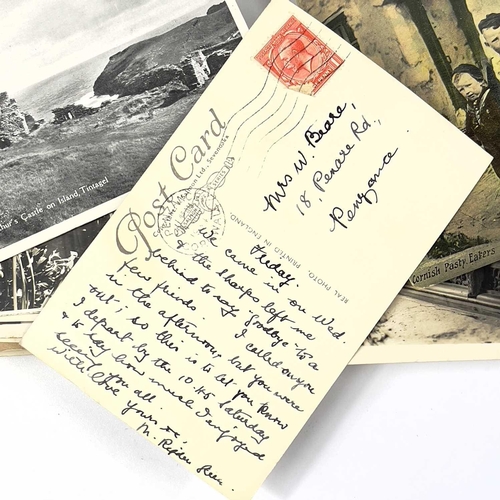 thur's Castle on Island, Tintagel
Post Card
REAL PHOTO. PRINTED IN ENGLAND.
Mrs W. Beare,
18, Penare Rd.,
Penzance.
Friday.
We came in on Wed.
& the Sharps left me
behind to say goodbye to a
few friends. I called on you
in the afternoon, but you were
out; so this is to let you know
I depart by the 10.45 Saturday
& to say how much I enjoyed
seeing you all.
With love
Yours
M.
Cornish Pasty Eaters